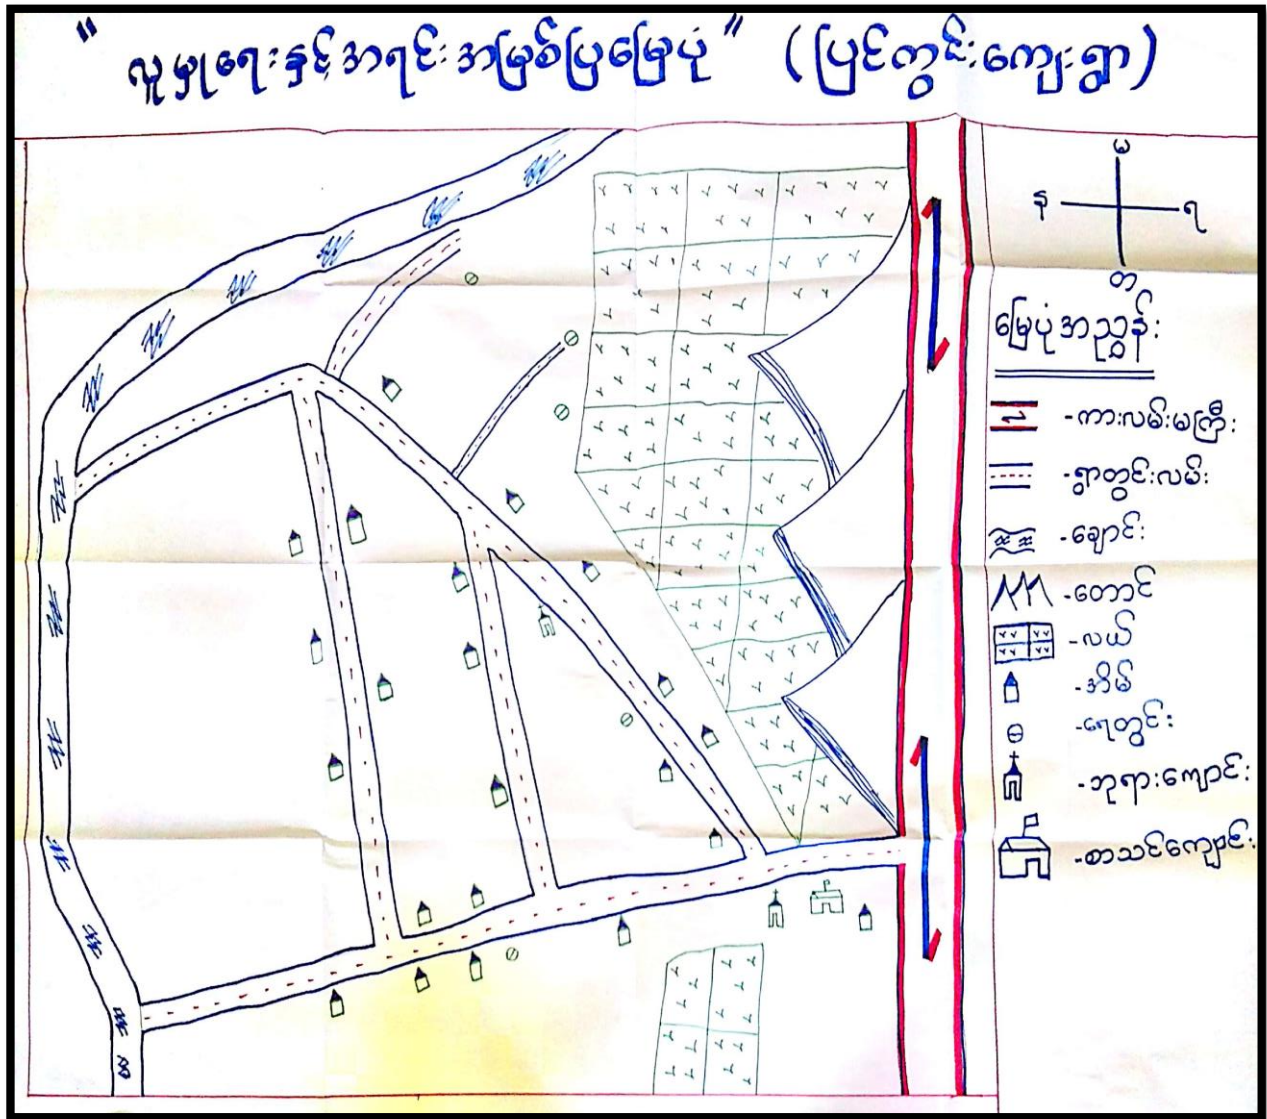 " လူမှုရေးနှင့်အရင်းအမြစ်ပြမြေပုံ " (ပြင်ကွင်းကျေးရွာ)
မ
န ရ
တ
မြေပုံအညွှန်း
-ကားလမ်းမကြီး
-ရွာတွင်းလမ်း
-ချောင်း
-တောင်
-လယ်
-အိမ်
-ရေတွင်း
-ဘုရားကျောင်း
-စာသင်ကျောင်း